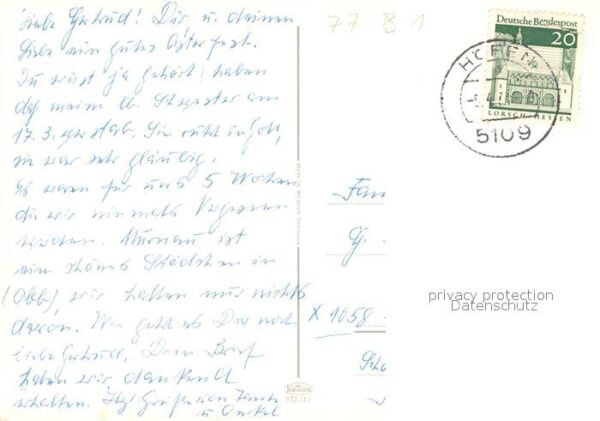 Liebe Gertrud! Dir u. deinen
Liebe ein gutes Osterfest.
Du wirst ja gehört haben
daß meine lb. Schwester am
17. 3. verstarb. Sie ruht in Gott,
sie war sehr gläubig.
Es waren für uns 5 Wochen
die wir niemals vergessen
werden. Murnau ist
ein schönes Städtchen in
(Obb), wir hatten nur nichts
davon. Wie geht es Dir noch
liebe Gertrud, Dein Brief
haben wir dankend
erhalten. Hzl Grüße von Tante
u Onkel
77 B 1
Deutsche Bundespost
20
LORSCH HESSEN
HÖFEN
5109
Fam
X 1058
privacy protection
Datenschutz
Krüger
972/13